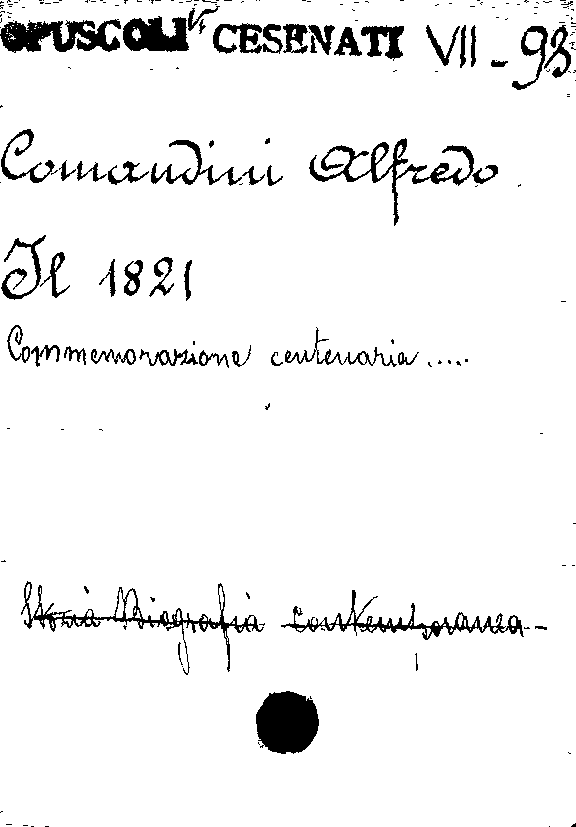 OPUSCOLI CESENATI VII - 93
Comandini Alfredo
Il 1821
Commemorazione centenaria .....
Storia Biografia contemporanea -